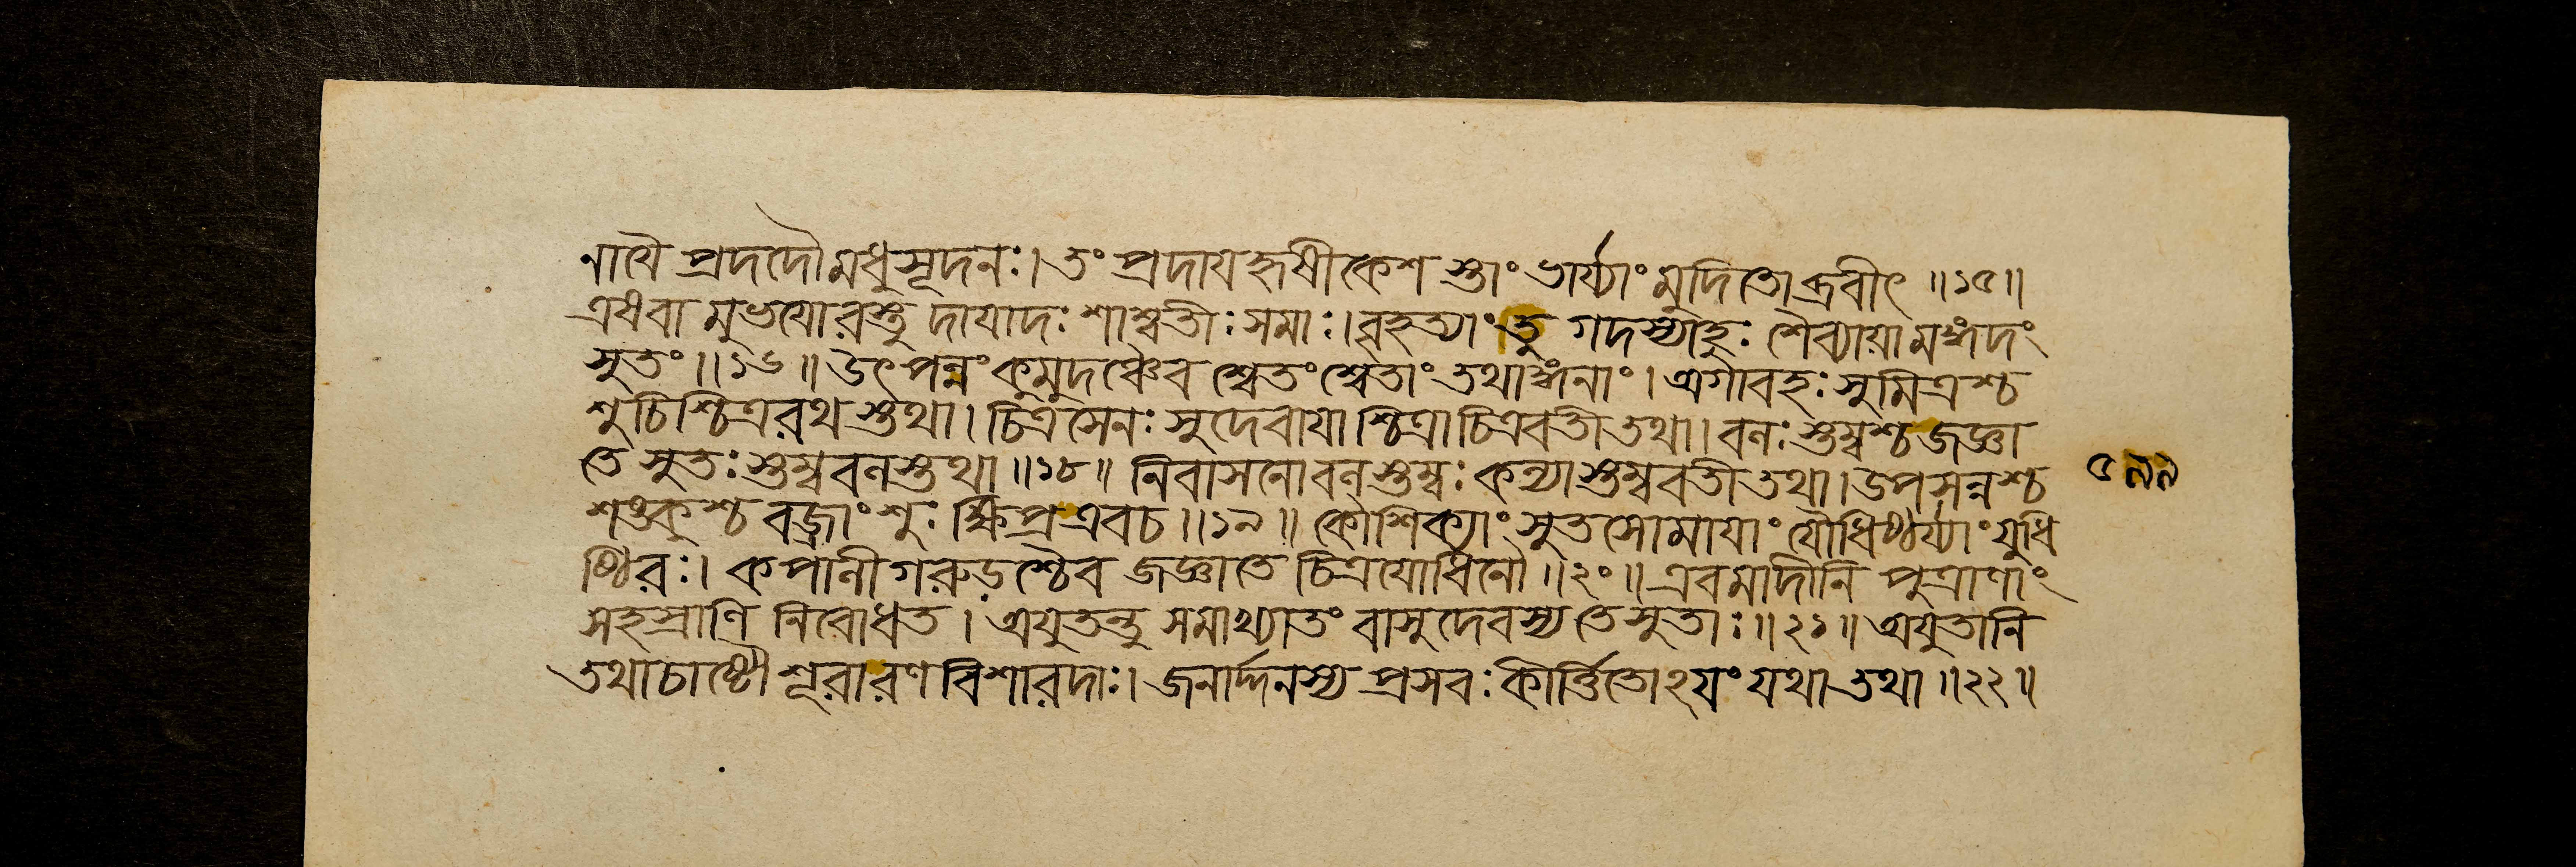 নার্য্যৈ প্রদদৌ মধুসূদনঃ। তং প্রদায হৃষীকেশ স্তাং ভার্য্যাং মুদিতোব্রবীৎ ॥১৫॥
এষবা মুভযোরস্তু দাযাদঃ শাশ্বতীঃ সমাঃ। বৃহত্যাং তু গদস্যাহুঃ শৈব্যাযা মঙ্গদং
সুতং ॥১৬॥ উৎপন্নং কুমুদঞ্চৈব শ্বেতং শ্বেতাং তথাঙ্গনাং। অগাবহঃ সুমিত্রশ্চ
শুচিশ্চিত্ররথ স্তথা। চিত্রসেনঃ সুদেবাযা শ্চিত্রা চিত্রবতী তথা। বনঃ স্তম্বশ্চ জজ্ঞা
তে সুতঃ স্তম্ববনস্তথা ॥১৮॥ নিবাসনোবনস্তম্বঃ কন্যা স্তম্ববতী তথা। উপসন্নশ্চ
শঙ্কুশ্চ বজ্রাংশুঃ ক্ষিপ্র এবচ ॥১৯॥ কৌশিক্যাং সুতসোমাযাং যৌধিষ্ঠির্য্যাং যুধি
ষ্ঠিরঃ। কপানী গরুড়শ্চৈব জজ্ঞাতে চিত্রযোধিনৌ ॥২০॥ এবমাদীনি পুত্রাণাং
সহস্রাণি নিবোধত। অযুতন্তু সমাখ্যাতং বাসুদেবস্য তে সুতাঃ ॥২১॥ অযুতানি
তথা চাষ্টৌ শূরা রণ বিশারদাঃ। জনার্দ্দনস্য প্রসবঃ কীর্ত্তিতোঽযং যথা তথা ॥২২॥
৫৯৯